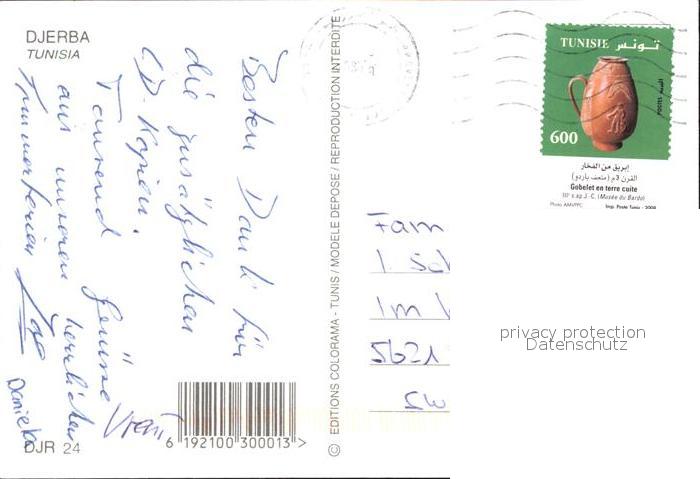 DJERBA
TUNISIA
Besten Dank für
die zusätzlichen
CD-Kopien.
Tausend Grüsse
aus unseren herrlichen
Daniela
DJR 24
6 192100 300013 >
© EDITIONS COLORAMA - TUNIS / MODELE DEPOSE / REPRODUCTION INTERDITE
TUNISIE تونس
600
POSTES البريد
إبريق من الفخار
القرن 3م (متحف باردو)
Gobelet en terre cuite
IIIᵉ s.ap.J.-C. (Musée du Bardo)
Photo AMVPPC Imp. Poste Tunis - 2008
Fam
Im
5621
SW
privacy protection
Datenschutz